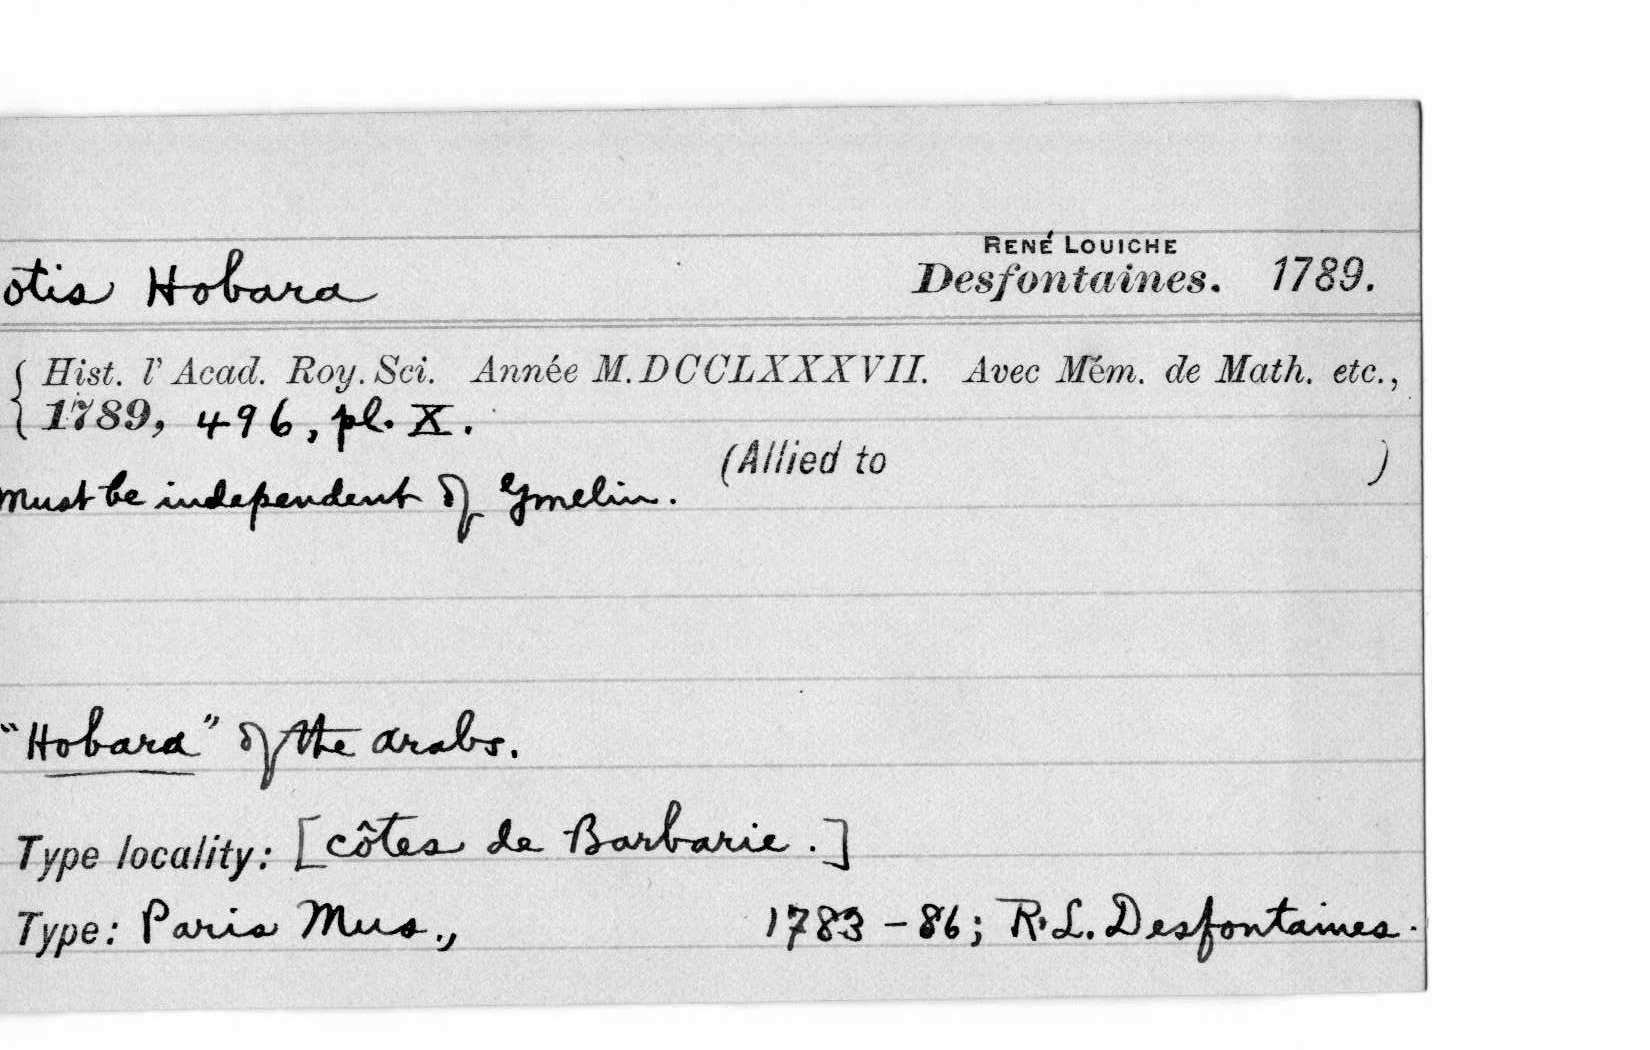 RENÉ LOUICHE
otis Hobara Desfontaines. 1789.
{ Hist. l' Acad. Roy. Sci. Année M.DCCLXXXVII. Avec Mém. de Math. etc.,
1789, 496, pl. X.
(Allied to )
Must be independent of Gmelin.
"Hobara" of the Arabs.
Type locality: [côtes de Barbarie.]
Type: Paris Mus., 1783-86; R.L. Desfontaines.